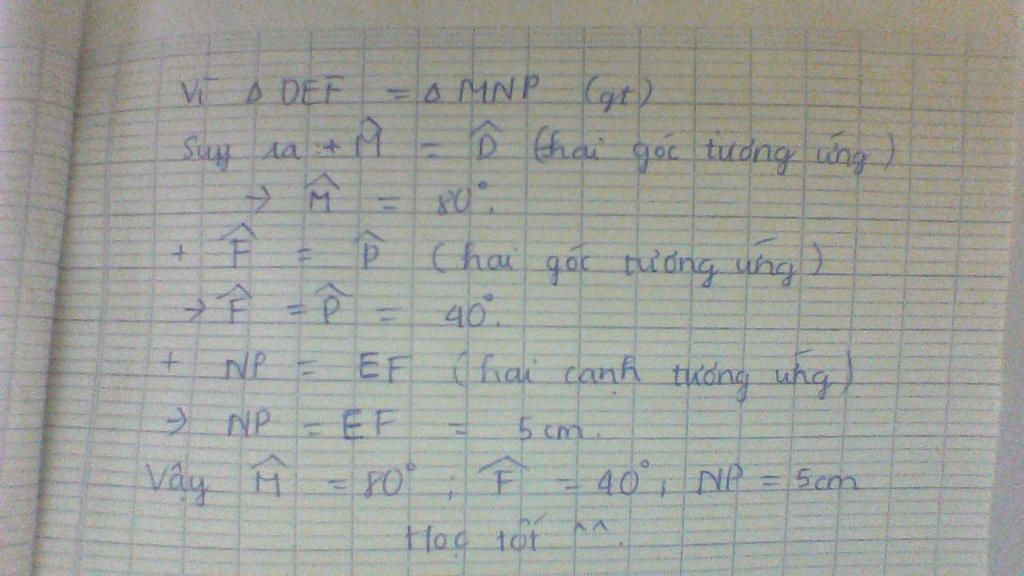 Vì Δ DEF = Δ MNP (gt)
Suy ra : + M̂ = D̂ (hai góc tương ứng)
→ M̂ = 80°.
+ F̂ = P̂ (hai góc tương ứng)
→ F̂ = P̂ = 40°.
+ NP = EF (hai cạnh tương ứng)
→ NP = EF = 5cm.
Vậy M̂ = 80° ; F̂ = 40° ; NP = 5cm
Học tốt ^^.